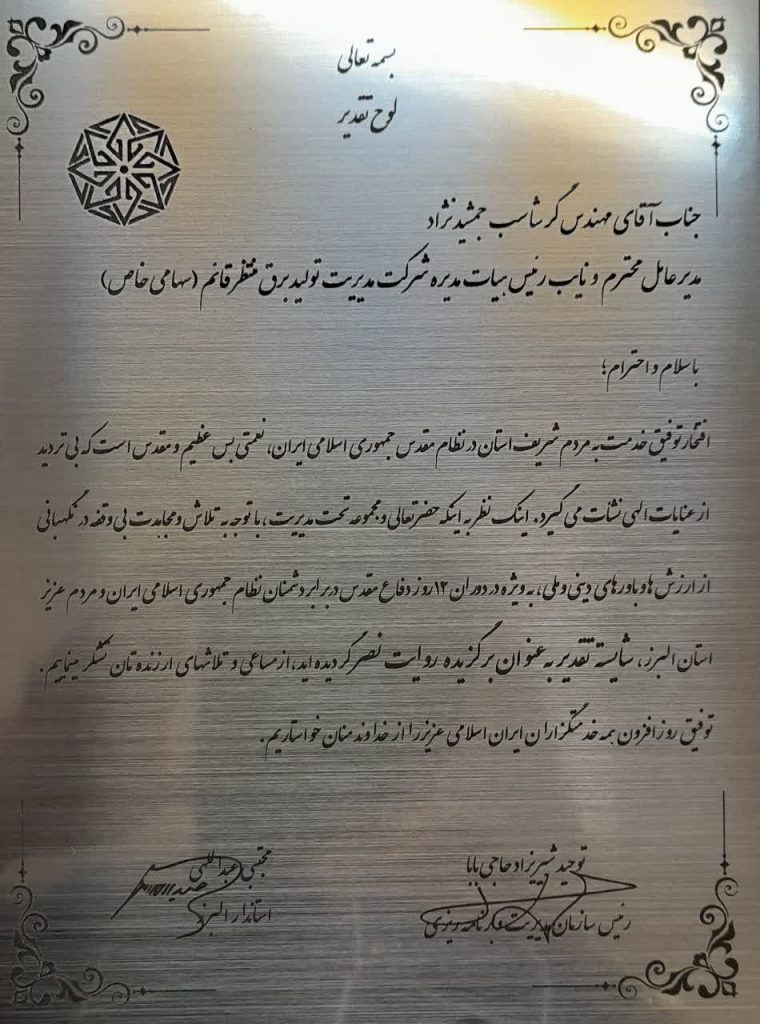 بسمه تعالی
لوح تقدیر
جناب آقای مهندس گرشاسب جمشیدنژاد
مدیرعامل محترم و نایب رئیس هیات مدیره شرکت مدیریت تولید برق منتظر قائم (سهامی خاص)
باسلام و احترام؛
افتخار توفیق خدمت به مردم شریف استان در نظام مقدس جمهوری اسلامی ایران، نعمتی بس عظیم و مقدس است که بی تردید
از عنایات الهی نشات می گیرد. اینک نظر به اینکه حضرتعالی و مجموعه تحت مدیریت، با توجه به تلاش و مجاهدت بی وقفه در نگهبانی
از ارزش ها و باورهای دینی و ملی، به ویژه در دوران ۱۲ روز دفاع مقدس در برابر دشمنان نظام جمهوری اسلامی ایران و مردم عزیز
استان البرز، شایسته تقدیر به عنوان برگزیده روایت نصر گردیده اید، از مساعی و تلاشهای ارزنده تان تشکر مینماییم.
توفیق روزافزون همه خدمتگزاران ایران اسلامی عزیز را از خداوند منان خواستاریم.
توحید شیرزاد حاجی بابا
رئیس سازمان مدیریت و برنامه ریزی
مجتبی عبداللهی
استاندار البرز